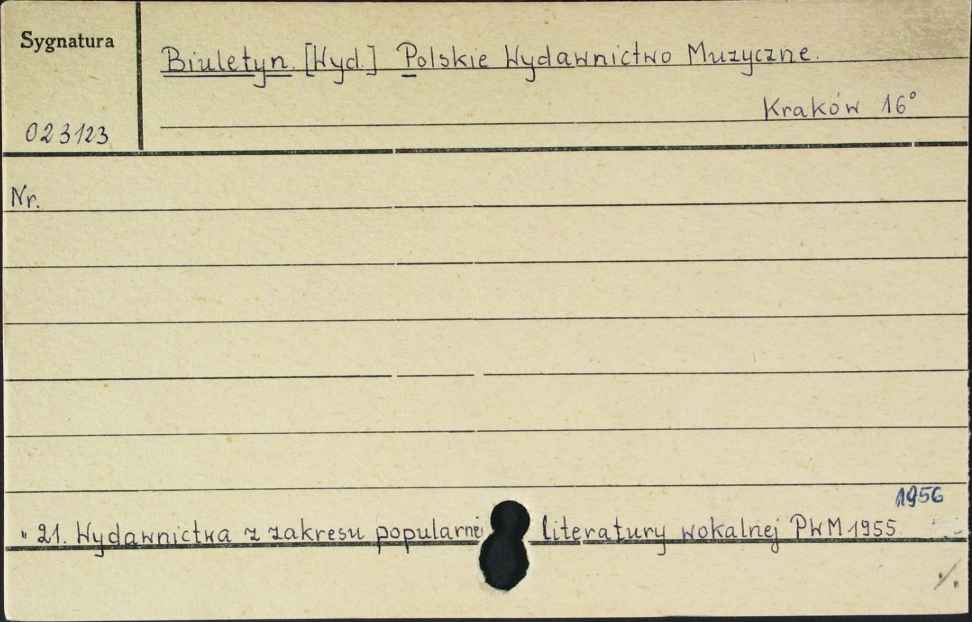 Sygnatura
Biuletyn. [Wyd.] Polskie Wydawnictwo Muzyczne.
Kraków 16°
023123
Nr.
1956
" 21. Wydawnictwa z zakresu popularnej literatury wokalnej PWM 1955
%.